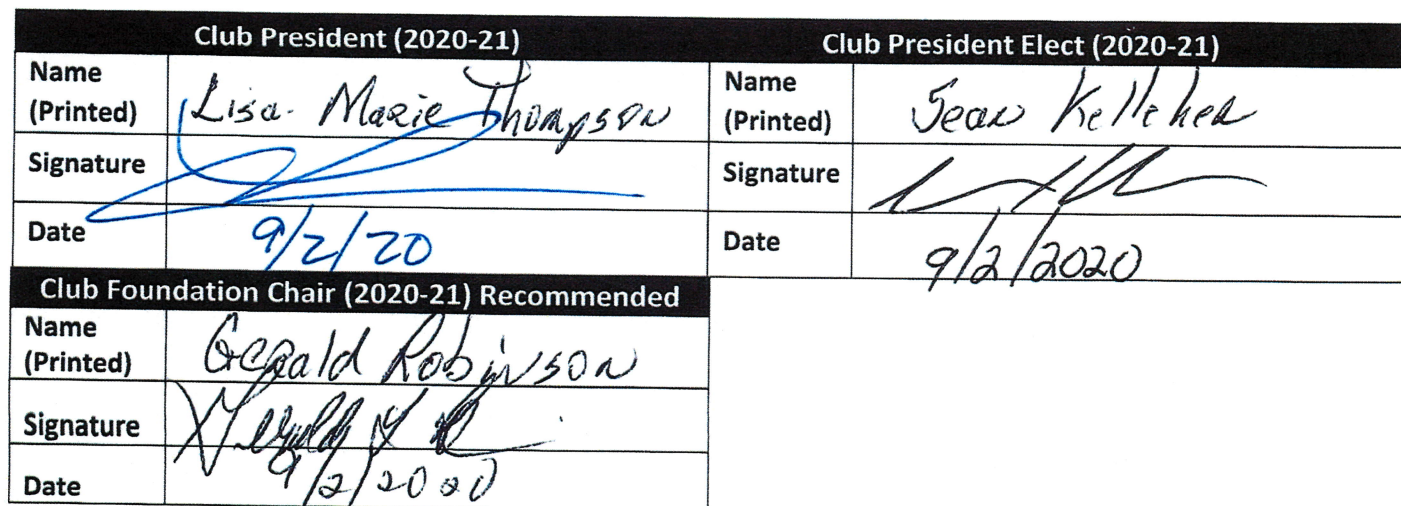 Club President (2020-21)
Name
(Printed)
Lisa-Marie Thompson
Signature
Date
9/2/20
Club President Elect (2020-21)
Name
(Printed)
Sean Kelleher
Signature
Date
9/2/2020
Club Foundation Chair (2020-21) Recommended
Name
(Printed)
Gerald Robinson
Signature
Date
9/2/2020